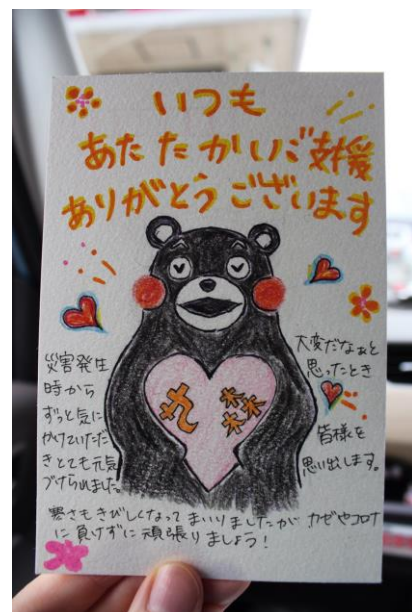 いつも
あたたかいご支援
ありがとうございます
災害発生
時から
ずっと気に
かけていただ
きとても元気
づけられました。
大変だなぁと
思ったとき
皆様を
思い出します。
寒さもきびしくなってまいりましたが カゼやコロナ
に負けずに頑張りましょう!